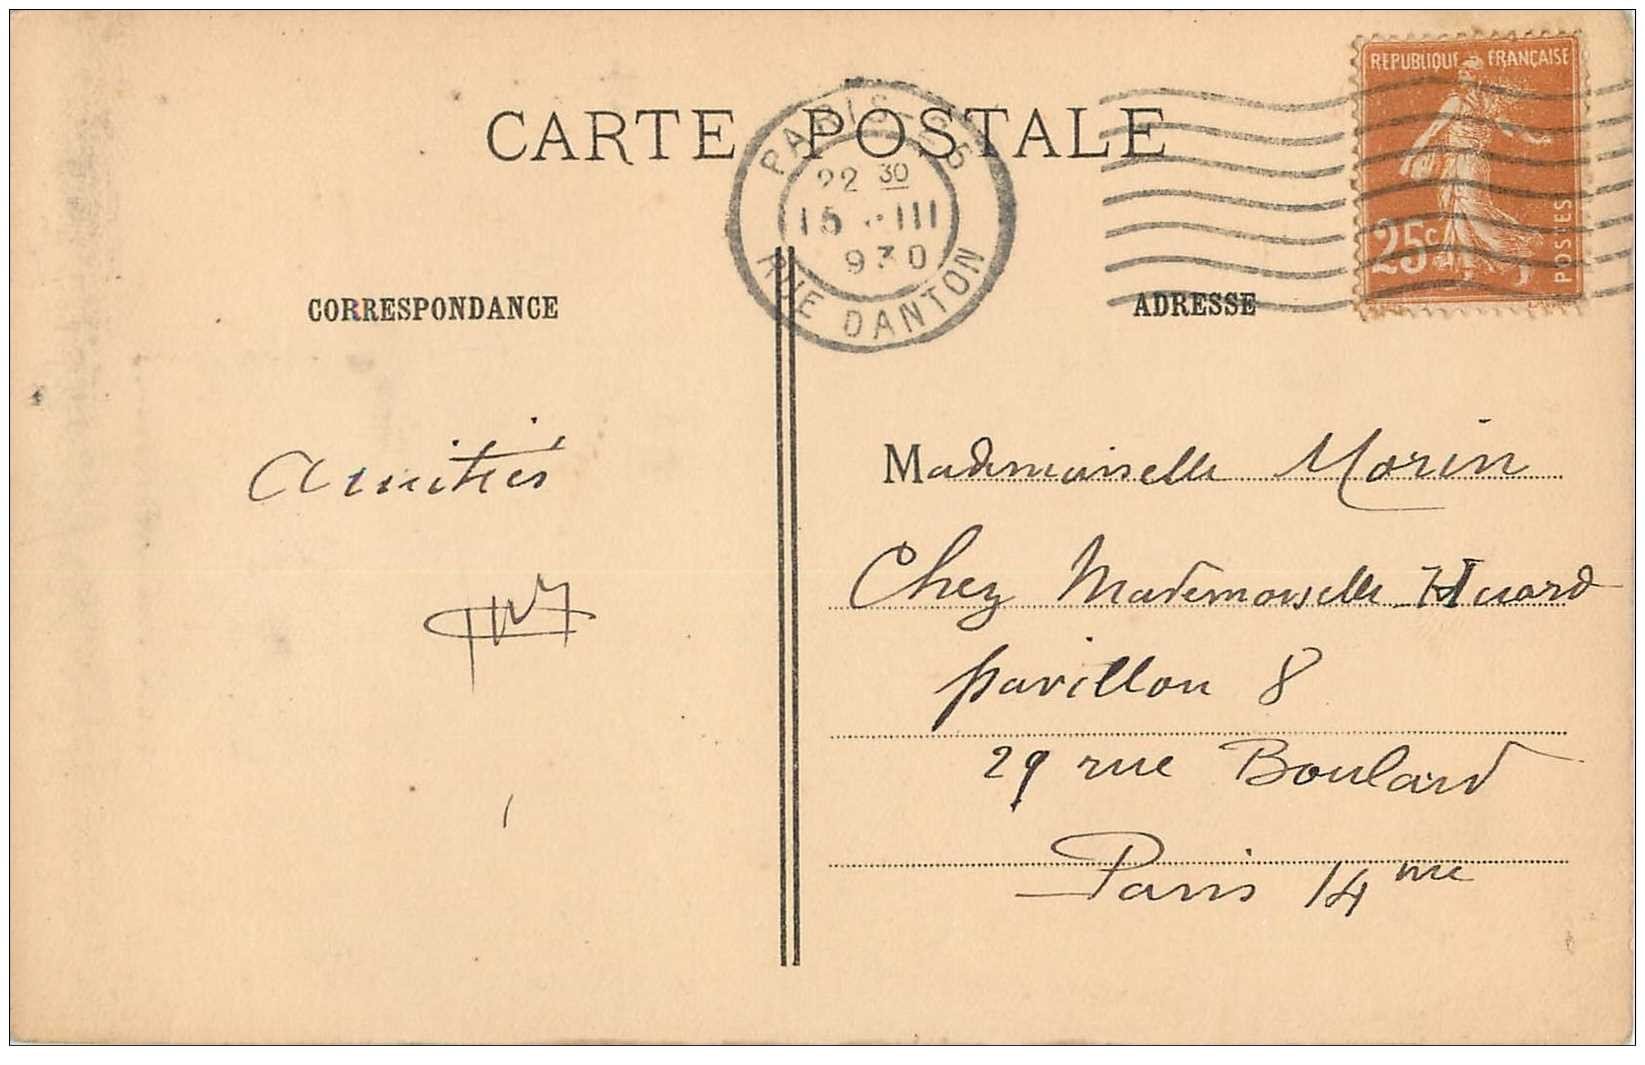 CARTE POSTALE
REPUBLIQUE FRANÇAISE
25c
POSTES
PARIS
22 30
15 III
930
RUE DANTON
CORRESPONDANCE
ADRESSE
Amitiés
Mademoiselle Morin
Chez Mademoiselle Huard
pavillon 8
29 rue Boulard
Paris 14me